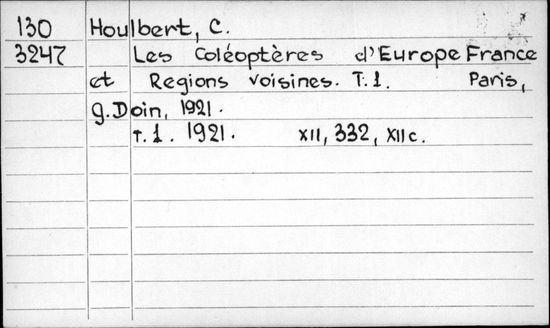 130 Houlbert, C.
3247 Les Coléoptères d'Europe France
et Regions voisines. T.1. Paris,
g.Doin, 1921.
T.1. 1921. XII, 332, XII c.